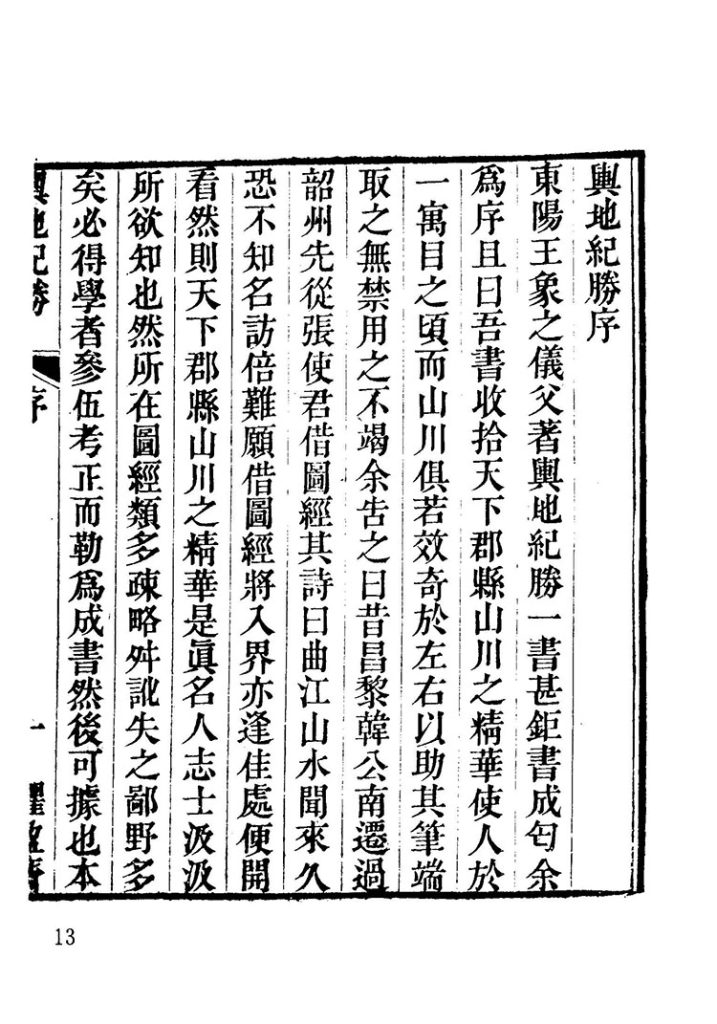 輿地紀勝序
東陽王象之儀父著輿地紀勝一書甚鉅書成匄余
爲序且曰吾書收拾天下郡縣山川之精華使人於
一寓目之頃而山川俱若效奇於左右以助其筆端
取之無禁用之不竭余告之曰昔昌黎韓公南遷過
韶州先從張使君借圖經其詩曰曲江山水聞來久
恐不知名訪倍難願借圖經將入界亦逢佳處便開
看然則天下郡縣山川之精華是眞名人志士汲汲
所欲知也然所在圖經類多疎略舛訛失之鄙野多
矣必得學者參伍考正而勒爲成書然後可據也本
輿地紀勝 序 一
13